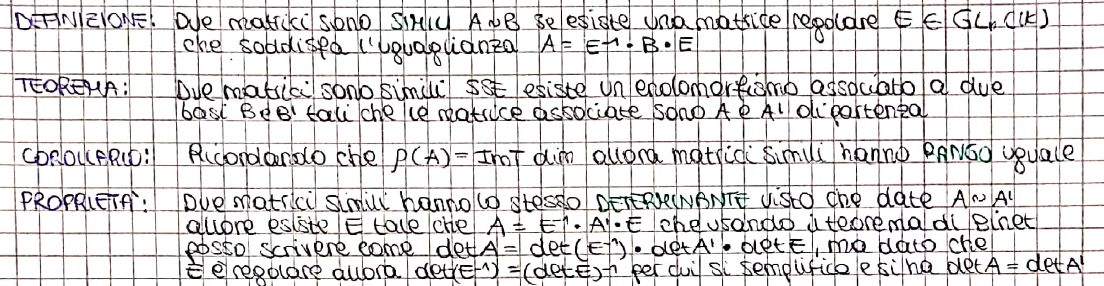 DEFINIZIONE: Due matrici sono SIMILI A∼B se esiste una matrice regolare E ∈ GLₙ(K)
che soddisfa l'uguaglianza A = E⁻¹ • B • E
TEOREMA: Due matrici sono simili SSE esiste un endomorfismo associato a due
basi B e B' tali che le matrice associate sono A e A' di partenza
COROLLARIO: Ricordando che ρ(A) = ImT dim allora matrici simili hanno RANGO uguale
PROPRIETA': Due matrici simili hanno lo stesso DETERMINANTE visto che date A∼A'
allora esiste E tale che A = E⁻¹ • A' • E che usando il teorema di Binet
posso scrivere come detA = det(E⁻¹) • detA' • detE, ma dato che
E è regolare allora det(E⁻¹) = (detE)⁻¹ per cui si semplifica e si ha detA = detA'